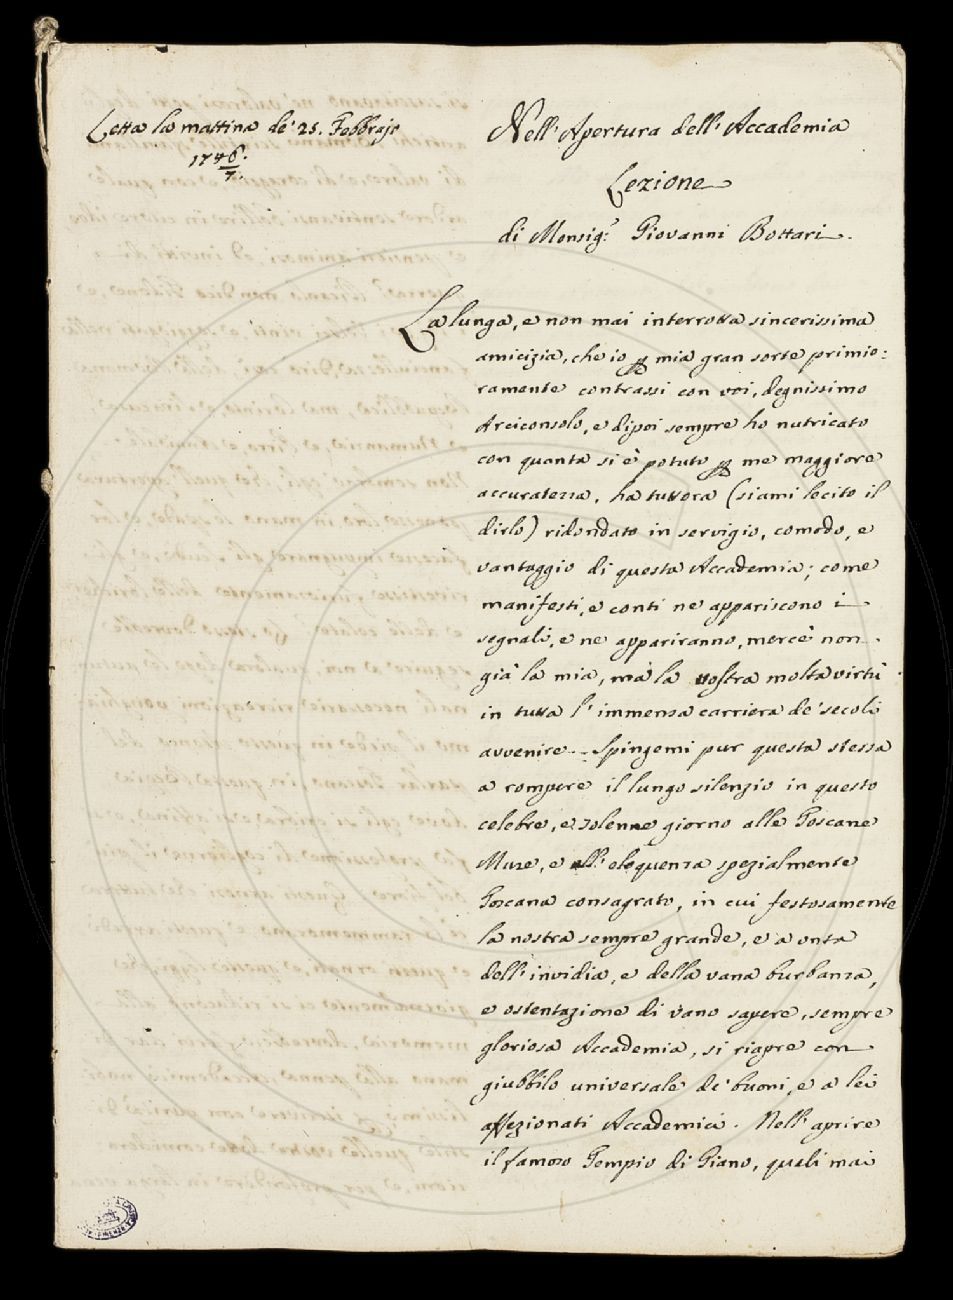 Letta la mattina de' 25. Febbrajo
1746.
7.
Nell'Apertura dell'Accademia
Lezione
di Monsig.r Giovanni Bottari.
La lunga, e non mai interrotta sincerissima
amicizia, che io p mia gran sorte primie:
ramente contrassi con voi, degnissimo
Arciconsolo, e dipoi sempre ho nutricato
con quanta si è potuto p me maggiore
accuratezza, ha tuttora (siami lecito il
dirlo) ridondato in servigio, comodo, e
vantaggio di questa Accademia; come
manifesti, e conti ne appariscono i
segnali, e ne appariranno, mercè non
già la mia, ma la vostra molta virtù
in tutta l'immensa carriera de' secoli
avvenire. Spingemi pur questa stessa
a rompere il lungo silenzio in questo
celebre, e solenne giorno alle Toscane
Muse, e all'eloquenza spezialmente
Toscana consagrato, in cui festosamente
la nostra sempre grande, e a onta
dell'invidia, e della vana burbanza,
e ostentazione di vano sapere, sempre
gloriosa Accademia, si riapre con
giubbilo universale de' buoni, e a lei
affezionati Accademici. Nell'aprire
il famoso Tempio di Giano, quali mai